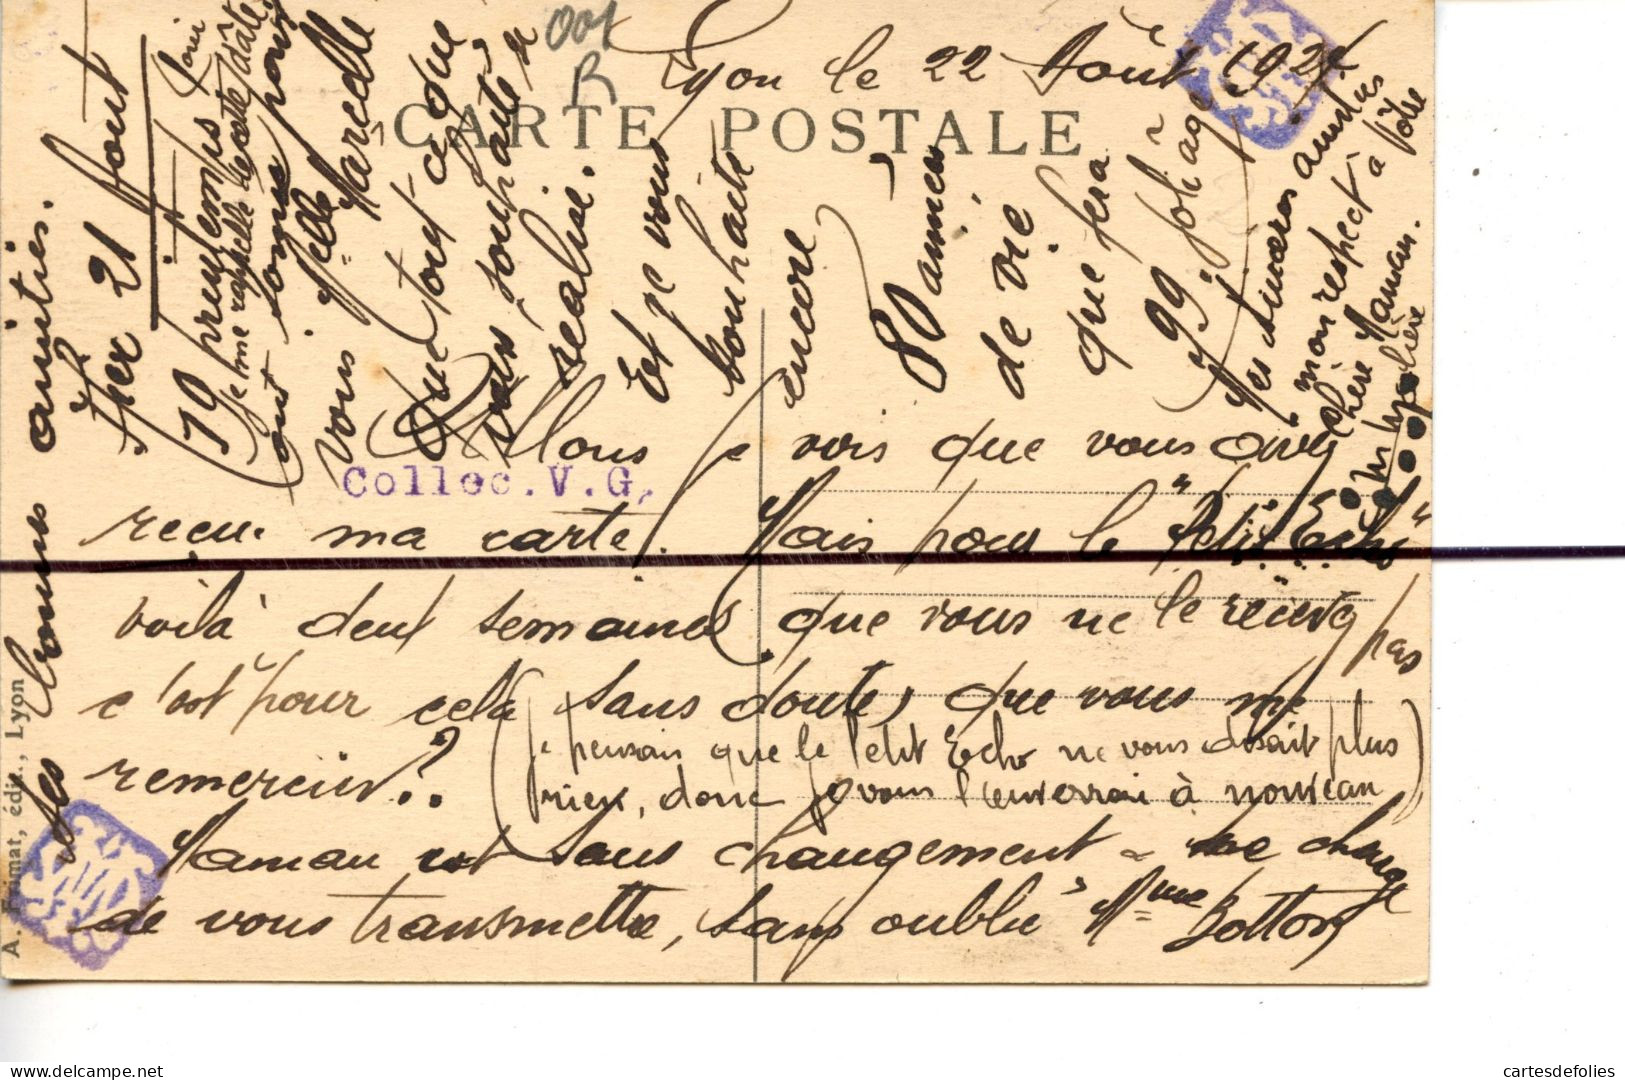 Lyon le 22 Août 1927
CARTE POSTALE
001
R
Allons je vois que vous avez
reçu ma carte. Mais pour le "Petit Echo"
voilà deux semaines que vous ne le recevez pas
c'est pour cela sans doute, que vous me
remerciez ? (je pensais que le Petit Echo ne vous disait plus
rien, donc je vous l'enverrai à nouveau)
Maman est sans changement - me charge
de vous transmettre, sans oublier Mme Botton
ses bonnes amitiés.
Hier 21 Aout
19 printemps
je me rappelle de cette date
ont sonné pour
vous Melle Marcelle
Que tout ce que
vous souhaitez se
réalise.
Et je vous
souhaite
encore
80 années
de vie
que fera
99 joli âge
Mes sincères amitiés
mon respect à Votre
chère Maman.
Collec. V. G.
A. Frimat, édit., Lyon
cartesdefolies